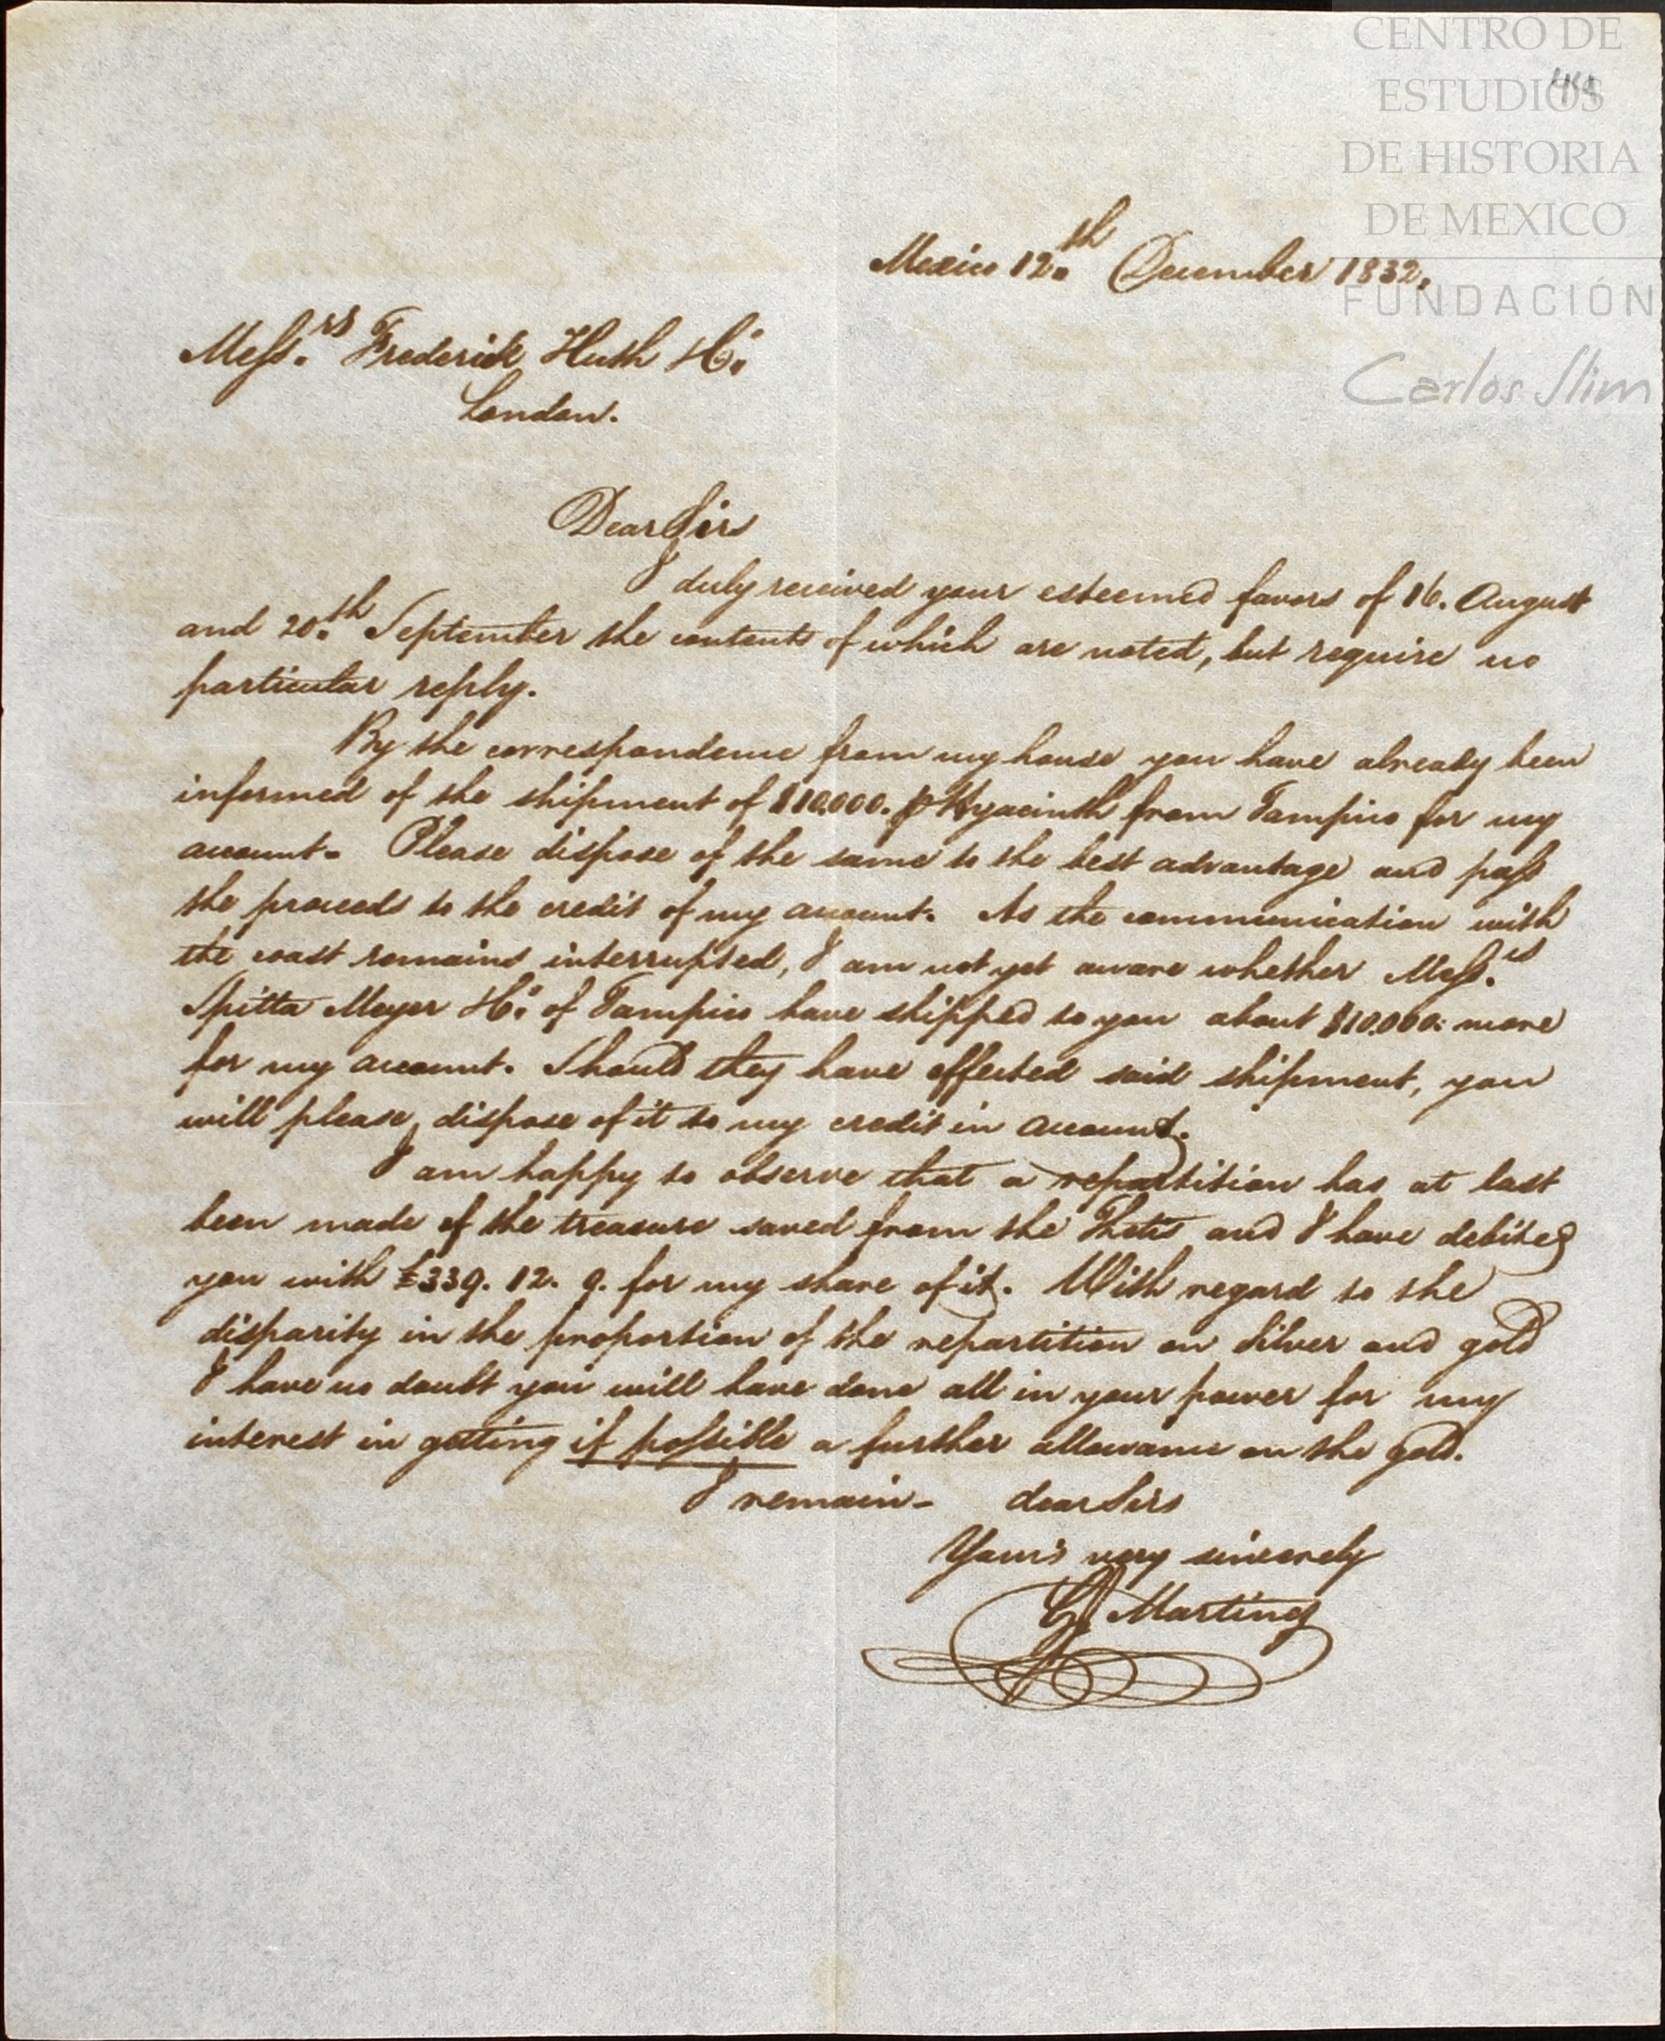 CENTRO DE
ESTUDIOS
DE HISTORIA
DE MEXICO
FUNDACIÓN
Carlos Slim
Mexico 12.th December 1832.
Mess.rs Frederick Huth &Co.
London.
Dear Sirs
I duly received your esteemed favors of 16. August
and 20.th September the contents of which are noted, but require no
particular reply.
By the correspondence from my house you have already been
informed of the shipment of $10.000. p Hyacinth from Tampico for my
account. Please dispose of the same to the best advantage and pass
the proceeds to the credit of my account. As the communication with
the coast remains interrupted, I am not yet aware whether Mess.rs
Spitta Meyer &Co. of Tampico have shipped to you about $10.000: more
for my account. Should they have effected said shipment, you
will please, dispose of it to my credit in account.
I am happy to observe that a repartition has at last
been made of the treasure saved from the Thetis and I have debited
you with £339. 12. 9. for my share of it. With regard to the
disparity in the proportion of the repartition on Silver and gold
I have no doubt you will have done all in your power for my
interest in getting if possible a further allowance on the gold.
I remain- dear Sirs
Your's very sincerely
Martinez